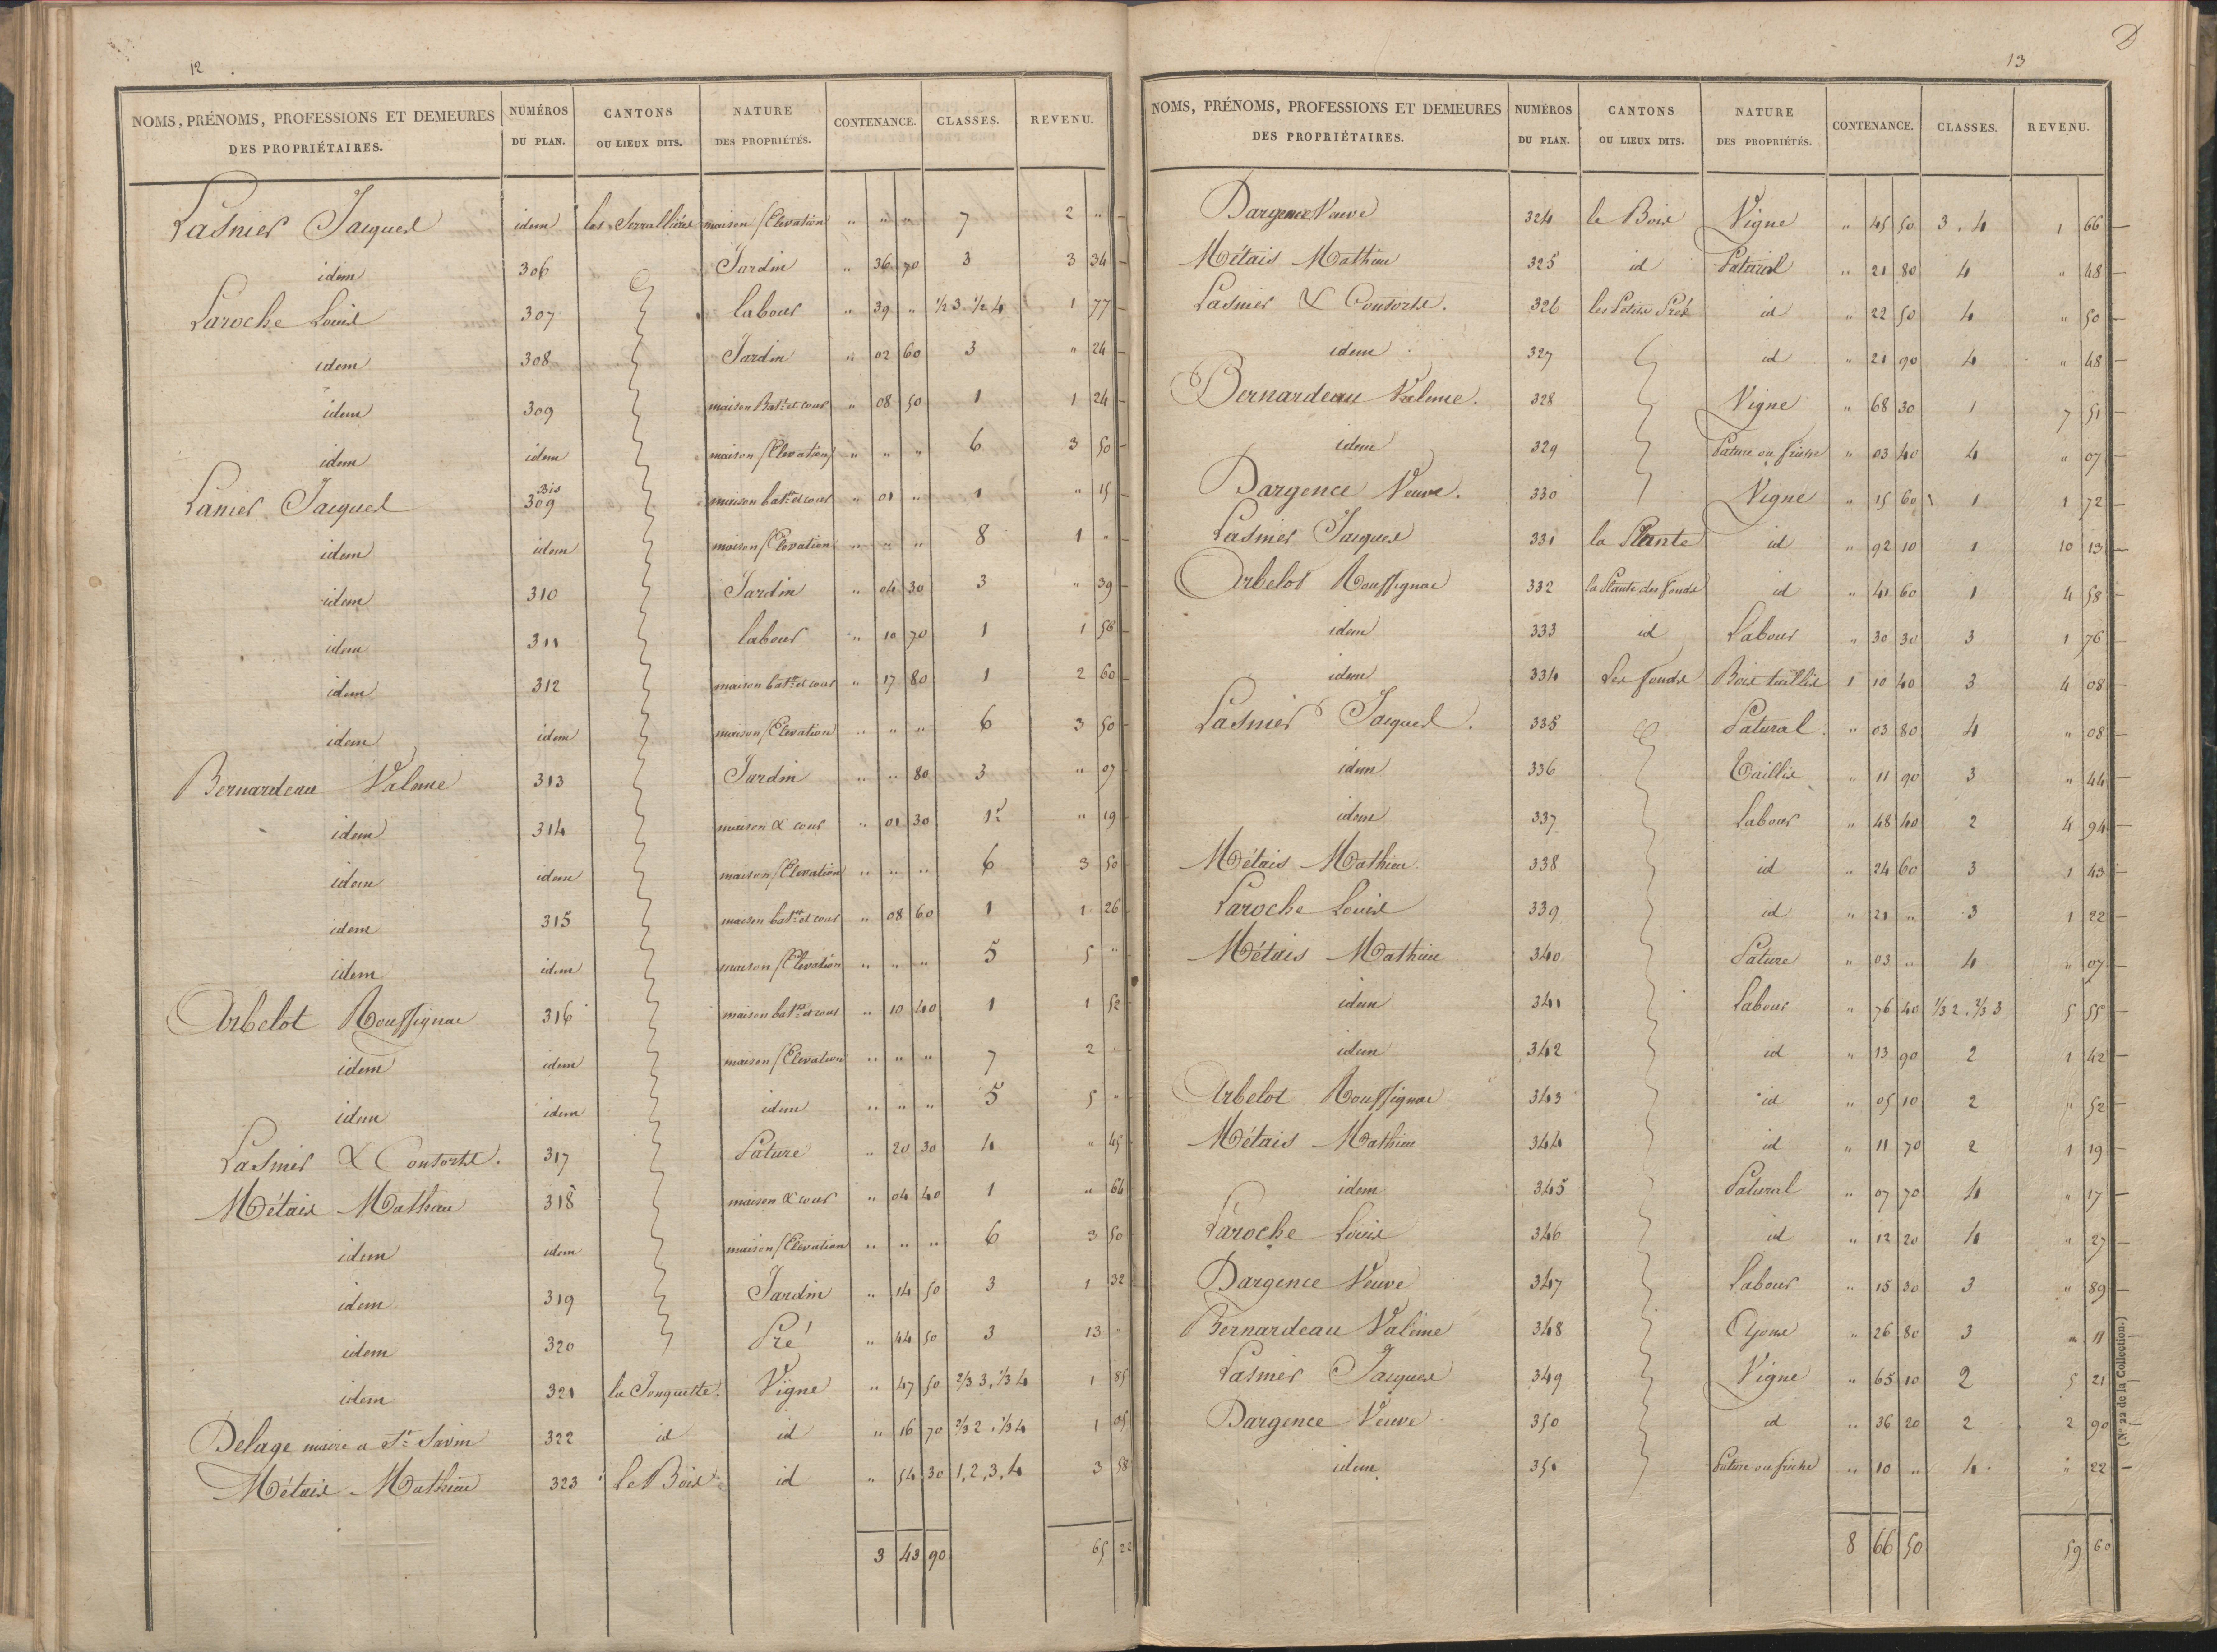 12
NOMS, PRÉNOMS, PROFESSIONS ET DEMEURES DES PROPRIÉTAIRES. NUMÉROS DU PLAN. CANTONS OU LIEUX DITS. NATURE DES PROPRIÉTÉS. CONTENANCE. CLASSES. REVENU.
Lasnier Jacques idem les Serrallières maison (Elevation " " " 7 2 "
idem 306 Jardin " 36 70 3 3 34
Laroche Louis 307 labour " 39 " 1/2 3. 1/2 4 1 77
idem 308 Jardin " 02 60 3 " 24
idem 309 maison Batt et cour " 08 50 1 1 24
idem idem maison (Elevation) " " " 6 3 50
Lanier Jacques 309 Bis maison batt et cour " 01 " 1 " 15
idem idem maison (Elevation " " " 8 1 "
idem 310 Jardin " 04 30 3 " 39
idem 311 labour " 10 70 1 1 56
idem 312 maison batt et cour " 17 80 1 2 60
idem idem maison (Elevation " " " 6 3 50
Bernardeau Valme 313 Jardin " " 80 3 " 07
idem 314 maison & cour " 01 30 1re " 19
idem idem maison (Elevation " " " 6 3 50
idem 315 maison batt et cour " 08 60 1 1 26
idem idem maison (Elevation " " " 5 5 "
Arbelot Rouffignac 316 maison batt et cour " 10 40 1 1 52
idem idem maison (Elevation " " " 7 2 "
idem idem idem " " " 5 5 "
Lasnier & Consorts. 317 Pature " 20 30 4 " 45
Métais Mathieu 318 maison & cour " 04 40 1 " 64
idem idem maison (Elevation " " " 6 3 50
idem 319 Jardin " 14 50 3 1 32
idem 320 Pré " 44 50 3 13 "
idem 321 la Jonquette. Vigne " 47 50 2/3 3, 1/3 4 1 85
Delage maire a St Savin 322 id id " 16 70 2/3 2. 1/3 4 1 05
Métais Mathieu 323 le Bois id " 54 30 1, 2, 3, 4 3 58
3 43 90 65 22
13
D
NOMS, PRÉNOMS, PROFESSIONS ET DEMEURES DES PROPRIÉTAIRES. NUMÉROS DU PLAN. CANTONS OU LIEUX DITS. NATURE DES PROPRIÉTÉS. CONTENANCE. CLASSES. REVENU.
Dargence Veuve 324 le Bois Vigne " 45 50 3. 4 1 66
Métais Mathieu 325 id Patural " 21 80 4 " 48
Lasnier & Consorts. 326 les Petits Prés id " 22 50 4 " 50
idem 327 id " 21 90 4 " 48
Bernardeau Valme. 328 Vigne " 68 30 1 7 51
idem 329 Pature ou friche " 03 40 4 " 07
Dargence Veuve. 330 Vigne " 15 60 1 1 72
Lasnier Jacques 331 la Plante id " 92 10 1 10 13
Arbelot Rouffignac 332 la Plante des fonds id " 41 60 1 4 58
idem 333 id Labour " 30 30 3 1 76
idem 334 Les fonds Bois taillis 1 10 40 3 4 08
Lasnier Jacques. 335 Patural. " 03 80 4 " 08
idem 336 Taillis " 11 90 3 " 44
idem 337 Labour " 48 40 2 4 94
Métais Mathieu 338 id " 24 60 3 1 43
Laroche Louis 339 id " 21 " 3 1 22
Métais Mathieu 340 Pature " 03 " 4 " 07
idem 341 labour " 76 40 1/3 2. 2/3 3 5 55
idem 342 id " 13 90 2 1 42
Arbelot Rouffignac 343 id " 05 10 2 " 52
Métais Mathieu 344 id " 11 70 2 1 19
idem 345 Patural " 07 70 4 " 17
Laroche Louis 346 id " 12 20 4 " 27
Dargence Veuve 347 Labour " 15 30 3 " 89
Bernardeau Valme 348 Ajons " 26 80 3 " 11
Lasnier Jacques 349 Vigne " 65 10 2 5 21
Dargence Veuve 350 id " 36 20 2 2 90
idem 351 Pature ou friche " 10 " 4 " 22
8 66 50 59 60
(No 22 de la Collection.)